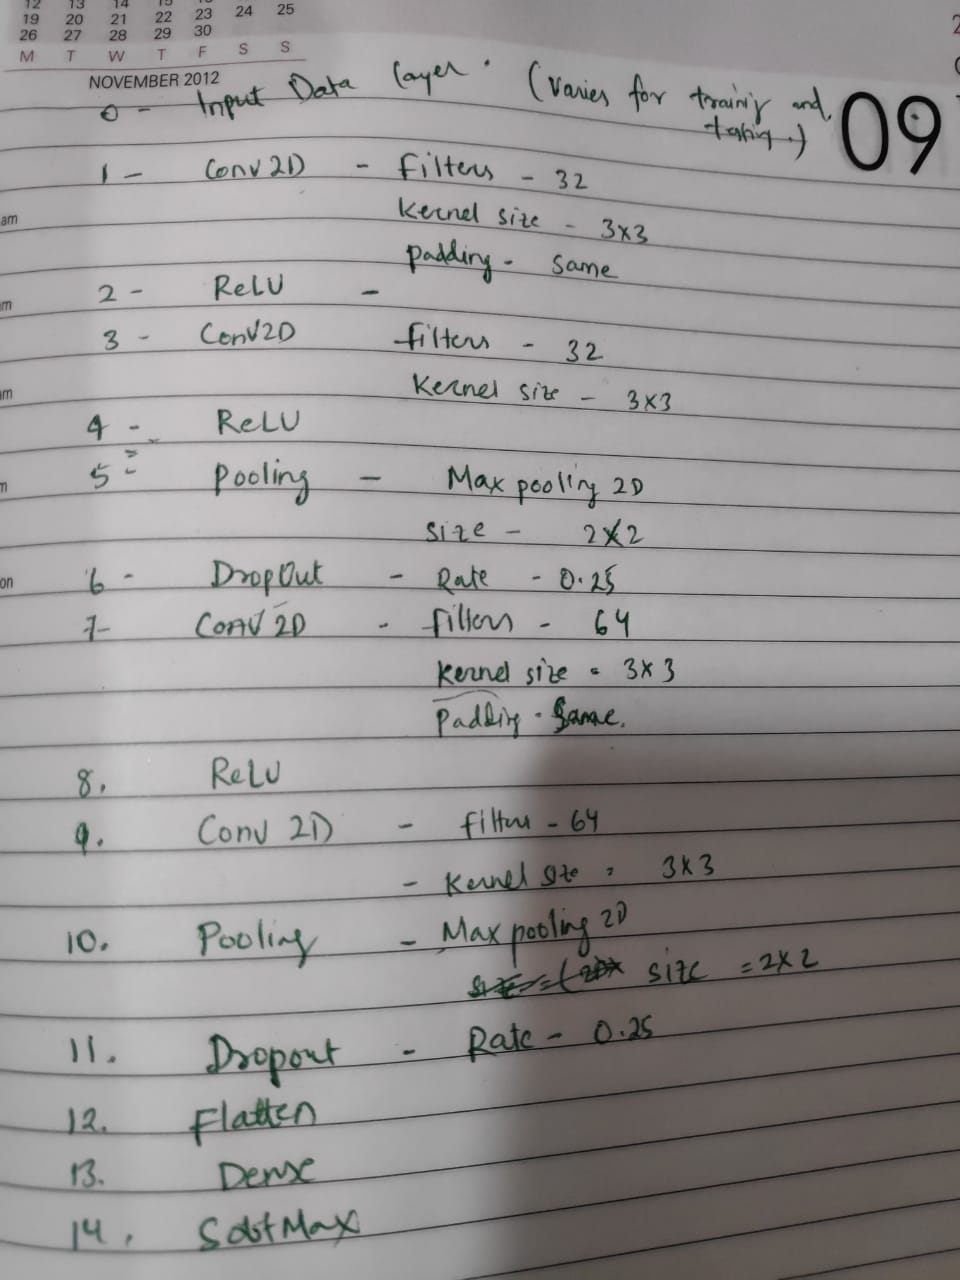 12 13 14 15 16
19 20 21 22 23 24 25
26 27 28 29 30
M T W T F S S
NOVEMBER 2012
09
0 - Input Data layer. (Varies for training and
testing.)
1 - Conv 2D - Filters - 32
Kernel size - 3x3
am
padding - same
2 - ReLU -
3 - Conv2D filters - 32
Kernel size - 3x3
4 - ReLU
5 - pooling - Max pooling 2D
size - 2x2
on
6 - DropOut - Rate - 0.25
7- Conv 2D - filters - 64
Kernel size = 3x3
Padding - Same.
8. ReLU
9. Conv 2D - filters - 64
- Kernel size = 3x3
10. Pooling - Max pooling 2D
size = 2x2
11. Dropout - Rate - 0.25
12. Flatten
13. Dense
14. SoftMax